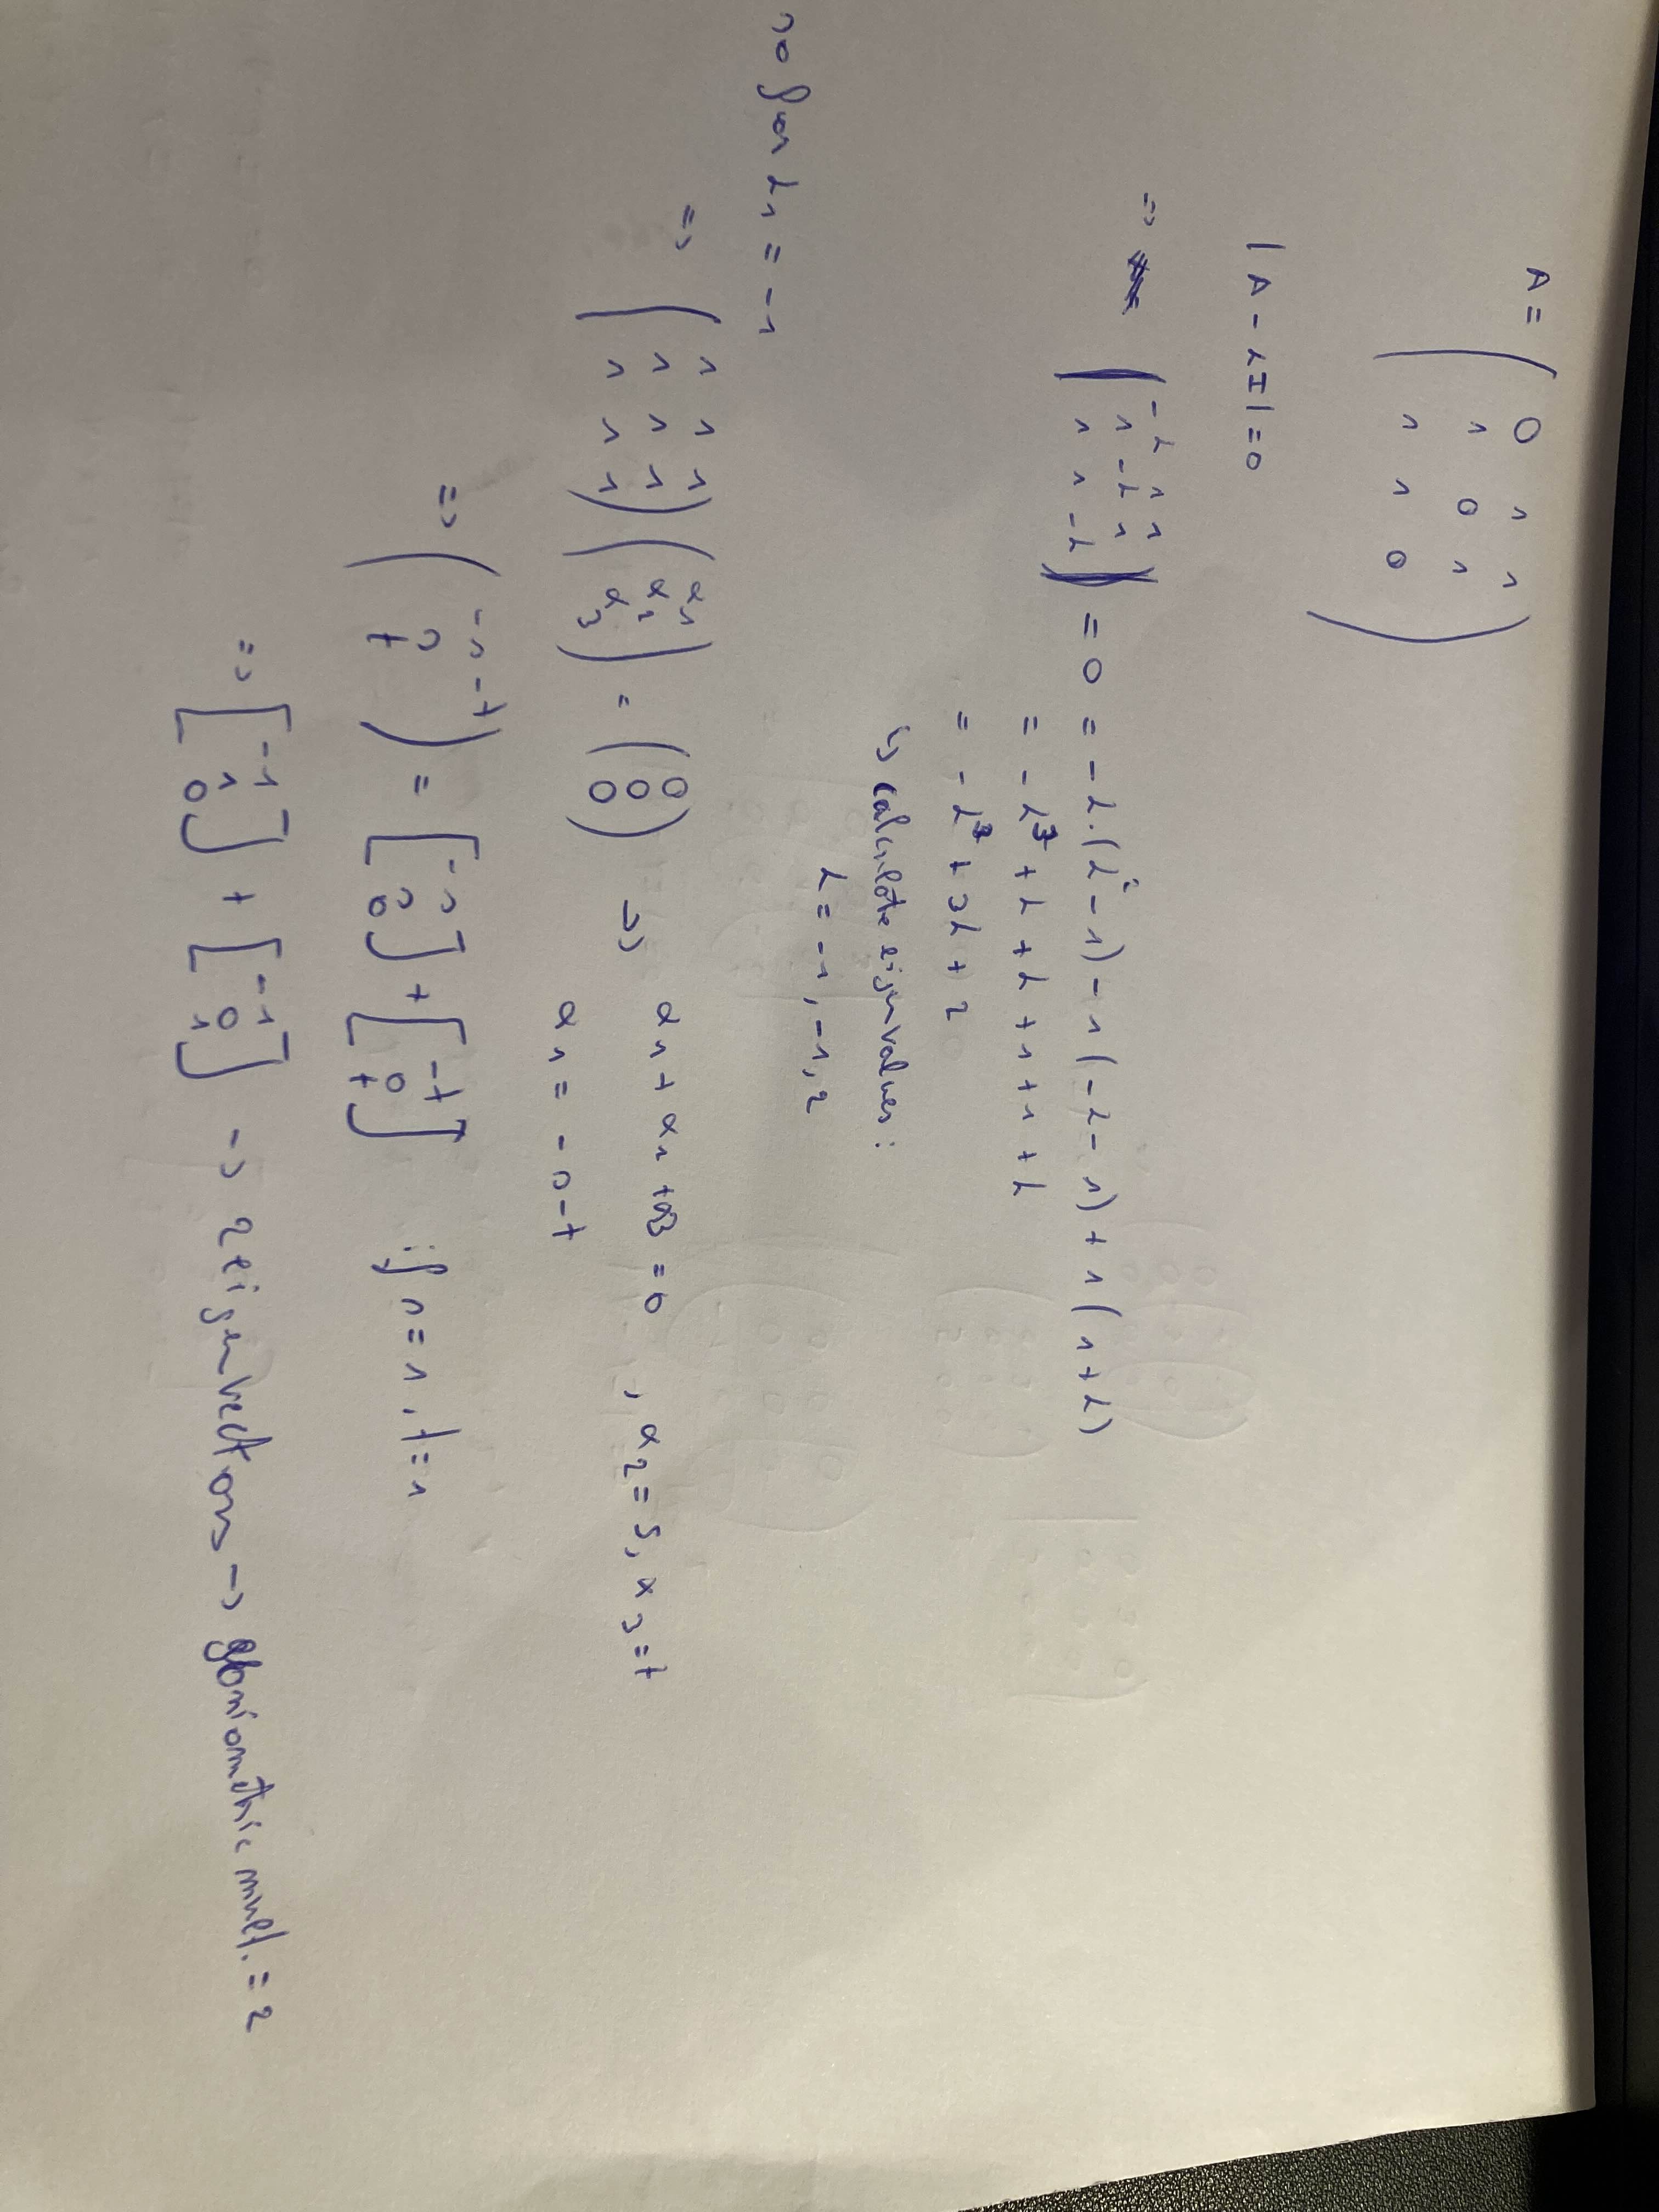 A = ( 0 1 1
1 0 1
1 1 0 )
| A - λI | = 0
=> | -λ 1 1
1 -λ 1
1 1 -λ | = 0 = -λ · (λ² - 1) - 1 (-λ - 1) + 1 (1 + λ)
= -λ³ + λ + λ + 1 + 1 + λ
= -λ³ + 3λ + 2
↳ calculate eigenvalues:
λ = -1, -1, 2
so for λ1 = -1
=> ( 1 1 1
1 1 1
1 1 1 ) ( x1
x2
x3 ) = ( 0
0
0 ) => x1 + x2 + x3 = 0 , x2 = s, x3 = t
x1 = -s - t
=> ( -s - t
s
t ) = [ -s
s
0 ] + [ -t
0
t ] if s = 1, t = 1
=> [ -1
1
0 ] + [ -1
0
1 ] -> 2 eigenvectors -> geometric mult. = 2